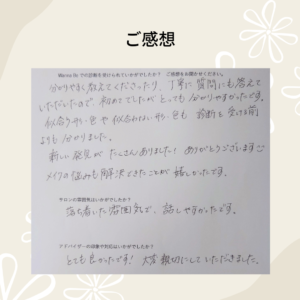 ご感想
での診断を受けられていかがでしたか？ ご感想をお聞かせください。
分かりやすく教えてくださったり、丁寧に質問にも答えて
いただいたので 初めてでしたが とっても分かりやすかったです。
似合う形・色や似合わない形・色も 診断を受ける前
よりも分かりました。
新しい発見が たくさんありました! ありがとうございます
メイクの悩みも解決できたことが 嬉しかったです。
サロンの雰囲気はいかがでしたか？
落ち着いた雰囲気で、話しやすかったです。
アドバイザーの印象や対応はいかがでしたか？
とても良かったです! 大変親切にしていただきました。